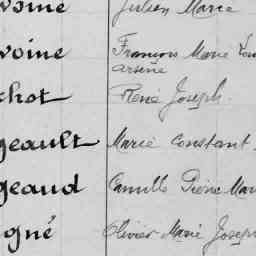 voine Julien Marie
voine François Marie
Arsène
chot René Joseph.
geault Marie Constant
geaud Camille Pierre Mari
gné Olivier Marie Joseph